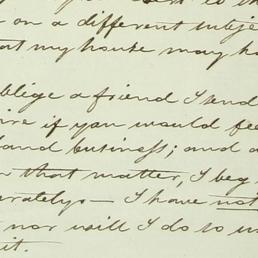 on a different subje
at my house may ha
blige a friend I send
ire if you would fee
land business; and a
r that matter, I beg
erately - I have not
nor will I do so u
it.